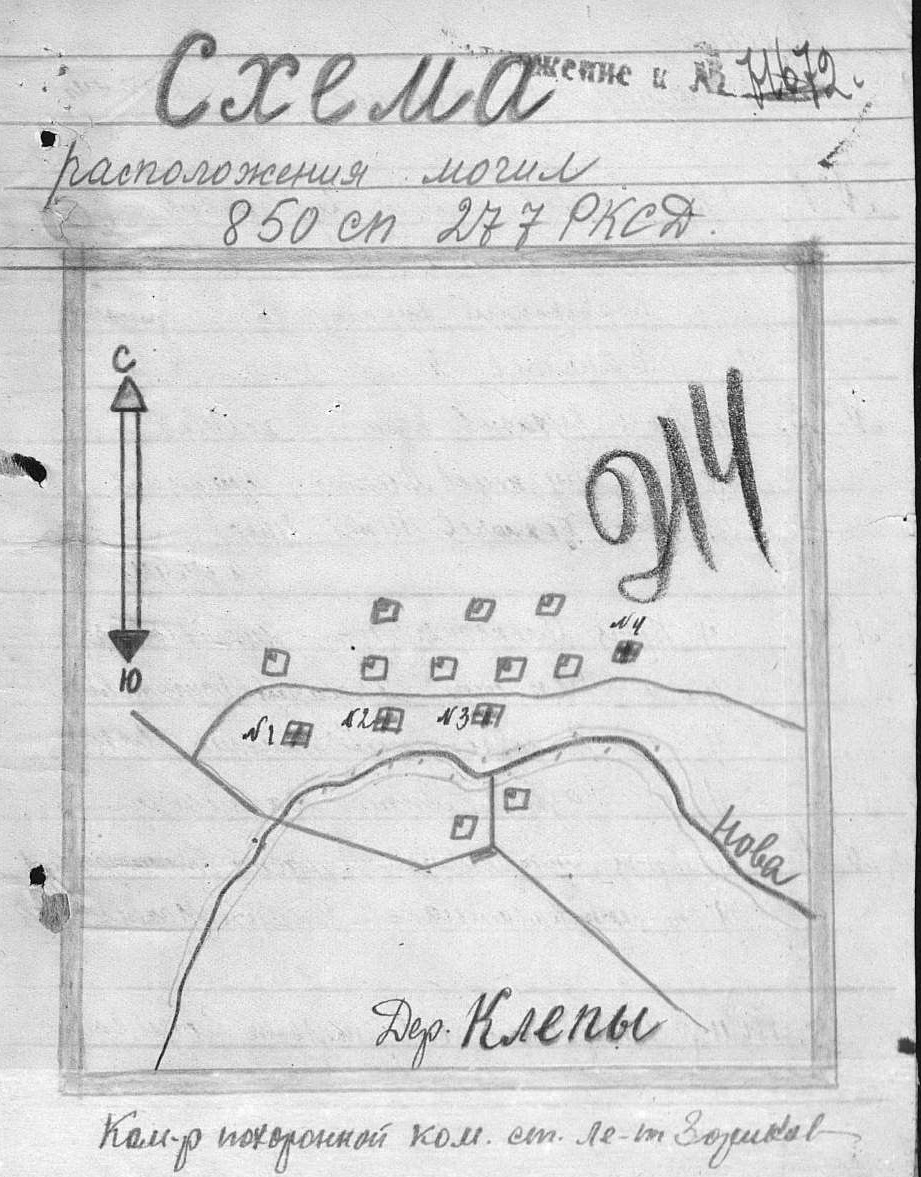 Схема
жение к № 71672.
расположения могил
850 сп 277 РКСД.
С
Ю
214
N4
N1
N2
N3
Нова
Дер. Клепы
Ком-р похоронной ком. ст. ле-т